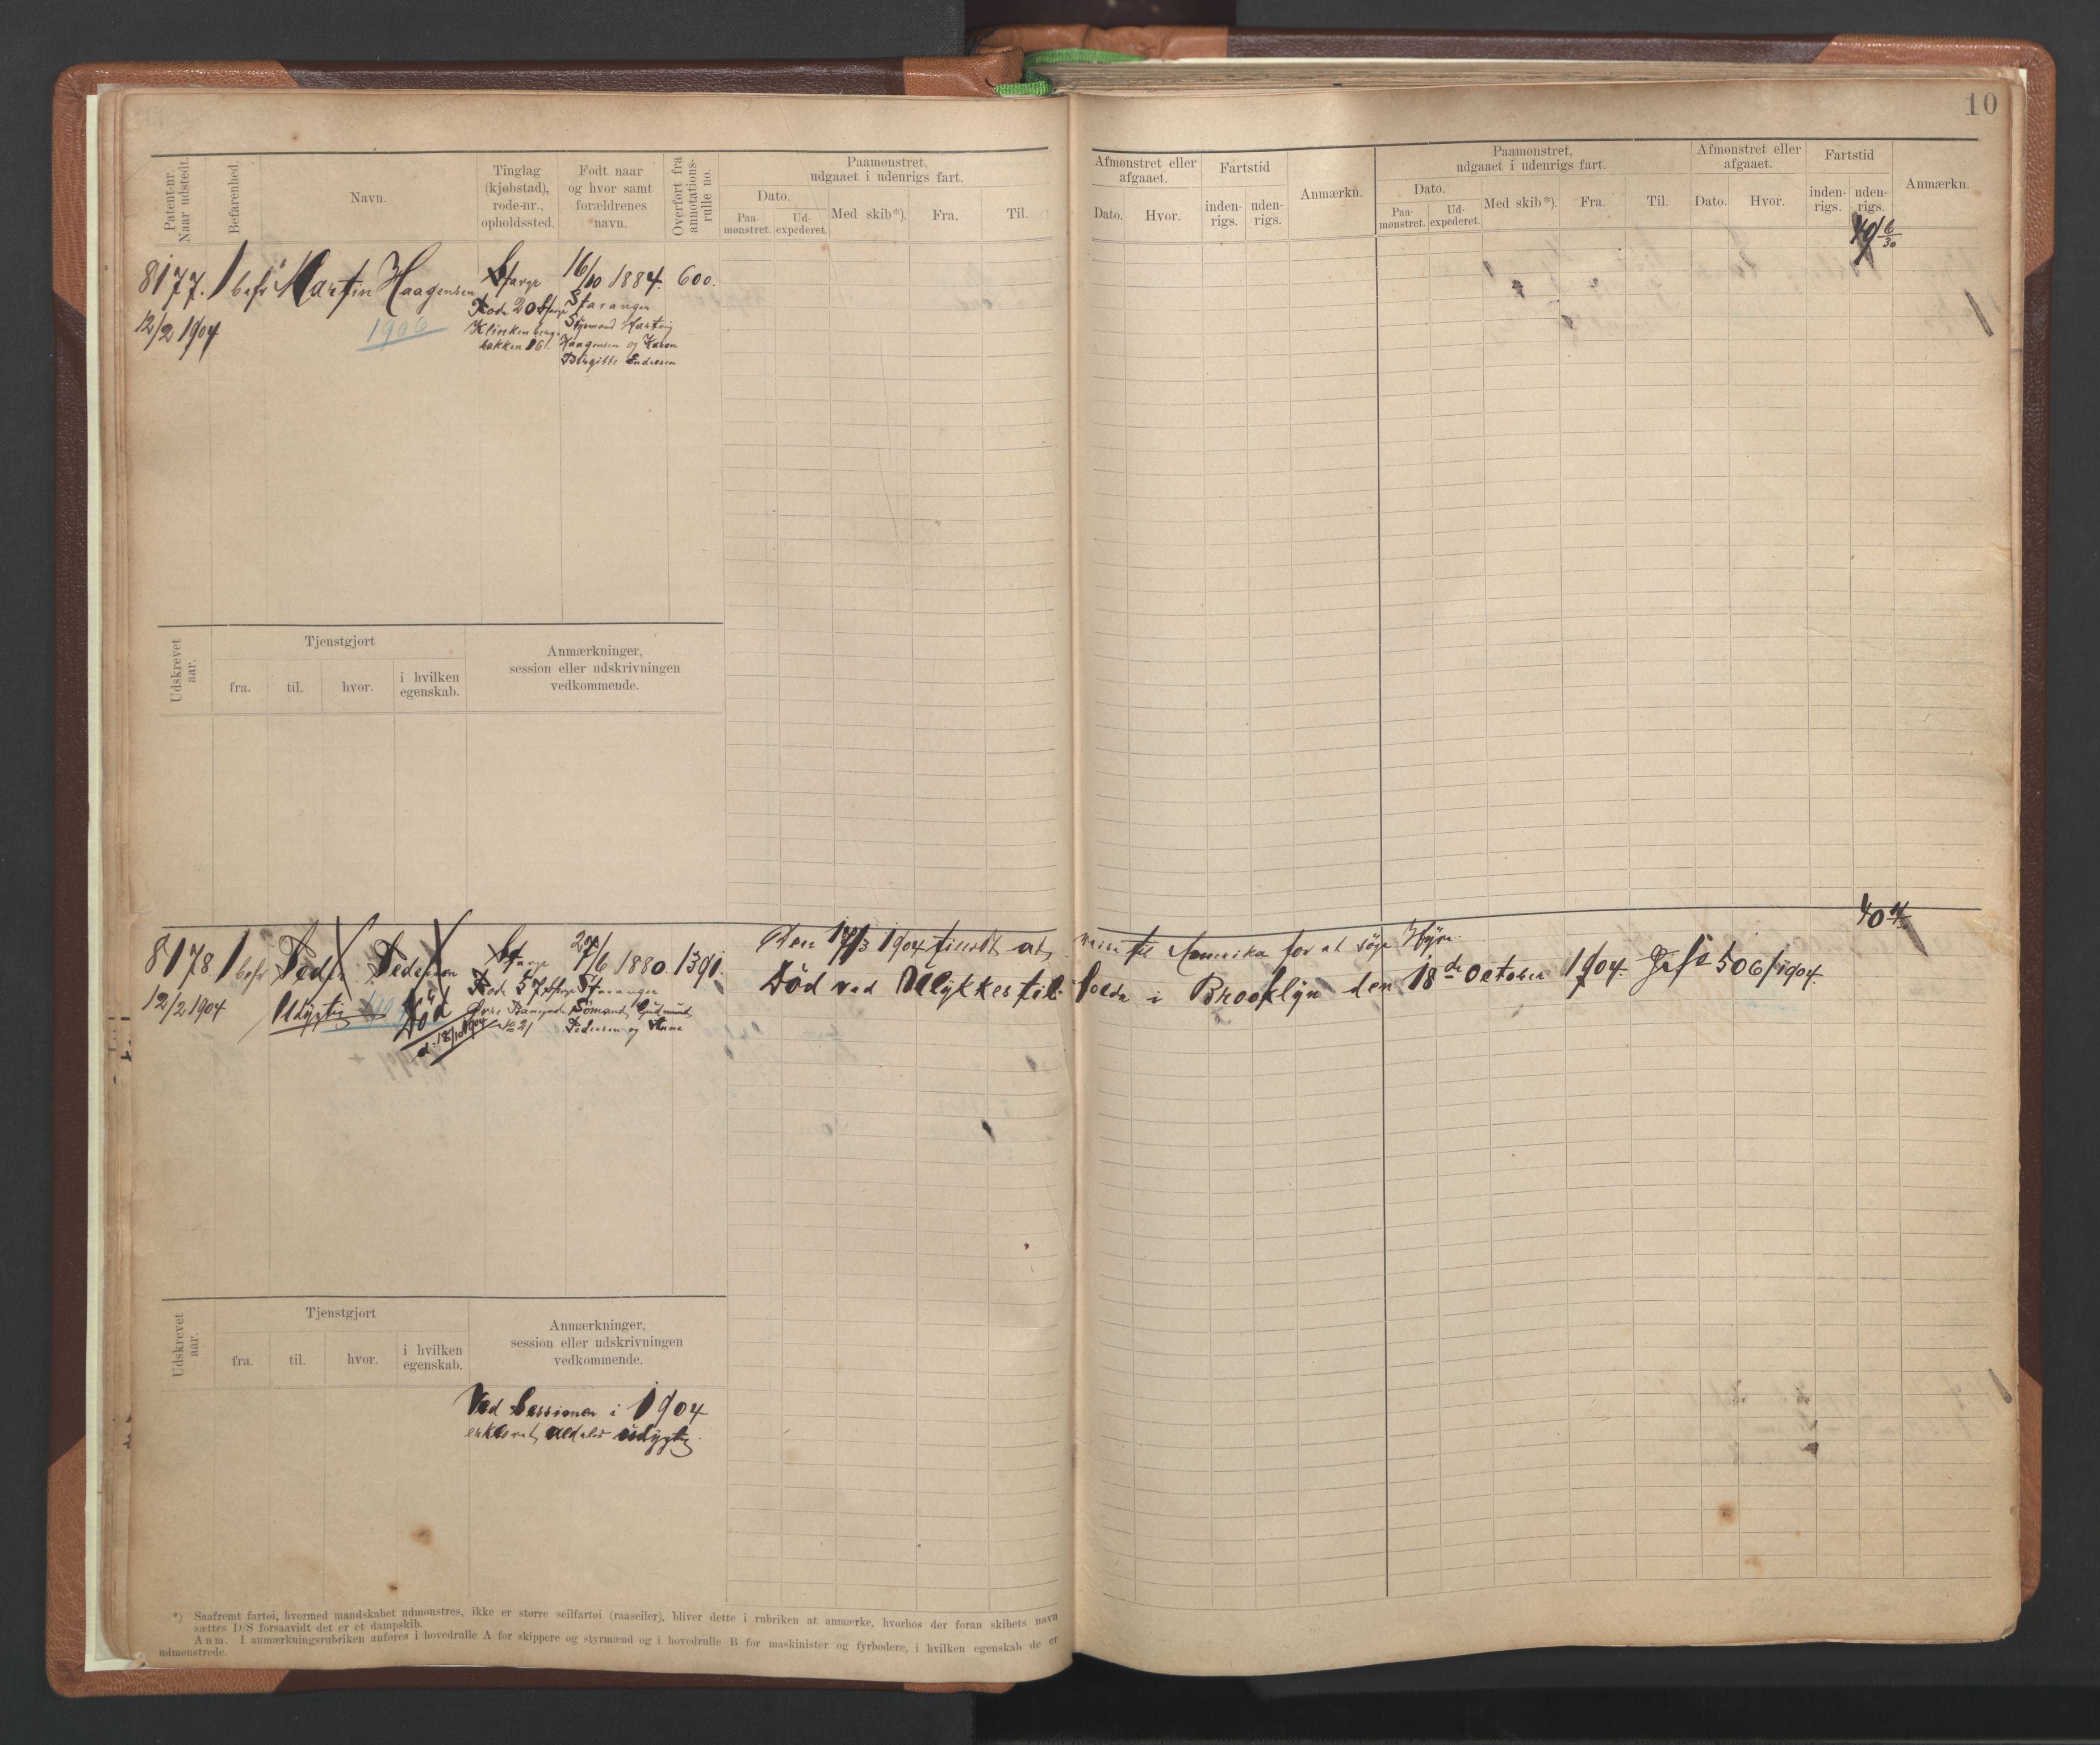 10
Patent-nr.
Naar udstedt.
Befarenhed.
Navn.
Tinglag
(kjøbstad),
rode-nr.,
opholdssted.
Født naar
og hvor samt
forældrenes
navn.
Overført fra
annotations-
rulle no.
Paamønstret,
udgaaet i udenrigs fart.
Dato.
Paa-
mønstret.
Ud-
expederet.
Med skib*).
Fra.
Til.
Afmønstret eller
afgaaet.
Dato.
Hvor.
Fartstid
inden-
rigs.
uden-
rigs.
Anmærkn.
Paamønstret,
udgaaet i udenrigs fart.
Dato.
Paa-
mønstret.
Ud-
expederet.
Med skib*).
Fra.
Til.
Afmønstret eller
afgaaet.
Dato.
Hvor.
Fartstid
inden-
rigs.
uden-
rigs.
Anmærkn.
8177.
12/2 1904
1 befr
Martin Haagensen
1906
Stavgr
Rode 20 Stavgr
Klinkenberg
bakken 16.
16/10 1884.
Stavanger
Sigmund Hartvig
Haagensen og Karen
Birgitte Endresen
600.
Udskrevet
aar.
Tjenstgjort
fra.
til.
hvor.
i hvilken
egenskab.
Anmærkninger,
session eller udskrivningen
vedkommende.
8178
12/2 1904
1 befr
Peder Pedersen
Udygtig
Død
d. 18/10 1904
Stavgr
Rode 57 Stavgr
No 21
27/6 1880.
Stavanger
Sømand Gudmund
Pedersen og Anne
1391.
Den 17/3 1904 tilladt at reise til Amerika for at søge Hyre.
Død ved Ulykkestilfælde i Brooklyn den 18de October 1904. 506/1904.
Udskrevet
aar.
Tjenstgjort
fra.
til.
hvor.
i hvilken
egenskab.
Anmærkninger,
session eller udskrivningen
vedkommende.
Ved Sessionen i 1904
erklæret aldeles udygtig.
*) Saafremt fartøi, hvormed mandskabet udmønstres, ikke er større seilfartøi (raaseiler), bliver dette i rubriken at anmærke, hvorhos der foran skibets navn
sættes D/S forsaavidt det er et dampskib.
Anm. I anmærkningsrubriken anføres i hovedrulle A for skippere og styrmænd og i hovedrulle B for maskinister og fyrbødere, i hvilken egenskab de er
udmønstrede.